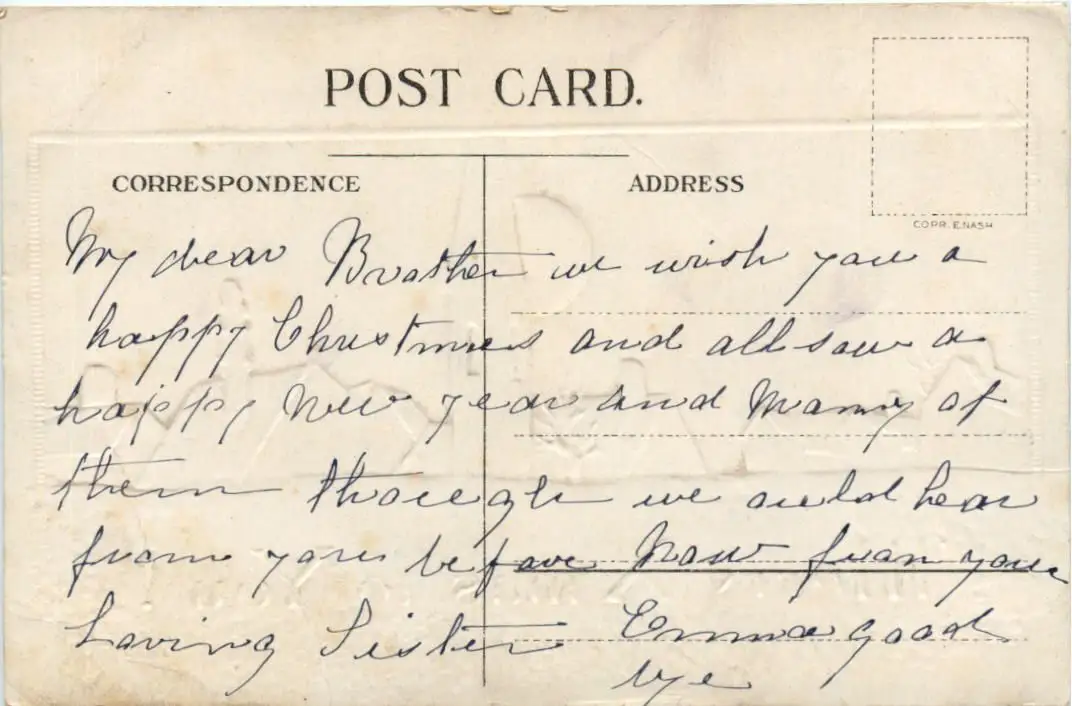 POST CARD.
CORRESPONDENCE
ADDRESS
COPR. E.NASH
My dear Brother we wish you a
happy Christmas and all sow a
happy New year and Manny of
them though we would hear
from you before Now from your
Loving Sister Emma good
bye